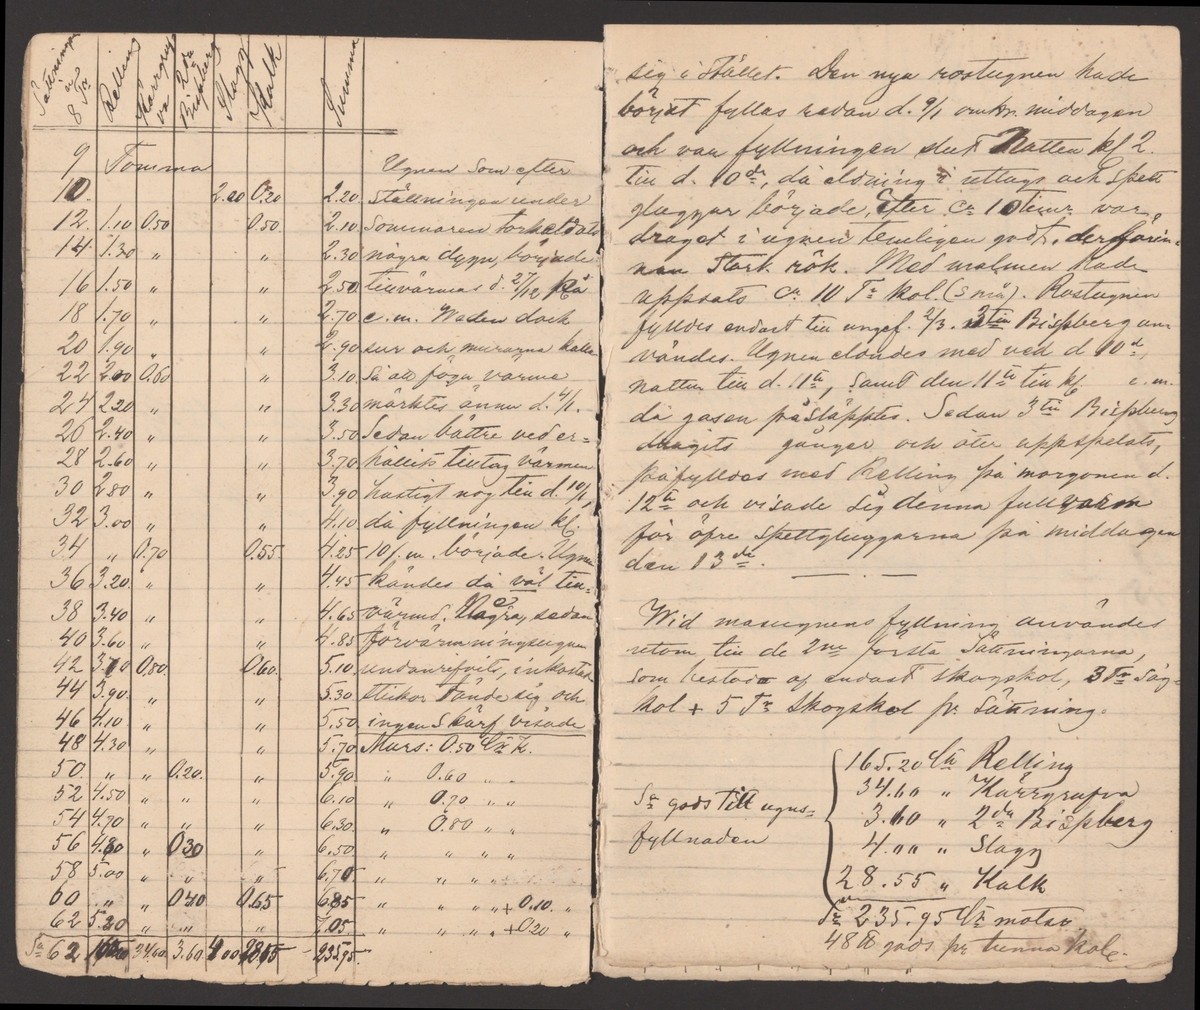 Sättningar
a
8 Tr
Relling
Kärrgrufva
2da Bispberg
Slagg
Kalk
Summa
9 Tomma
Ugnen som efter
10. 2.00 0.20 2.20 Ställningen under
12 1.10 0.50 0.50 2.10 Sommaren torkeldats
14 1.30 " " 2.30 några dygn, började
16 1.50 " " 2.50 tillvärmas d. 27/12 på
18 1.70 " " 2.70 e.m. Waden dock
20 1.90 " " 2.90 sur och murarna kalla
22 2.00 0.60 " 3.10 Så att föga värme
24 2.20 " " 3.30 märktes ännu d. 4/1.
26 2.40 " " 3.50 Sedan bättre ved er=
28 2.60 " " 3.70 hållits tilltog värmen
30 2.80 " " 3.90 hastigt nog till d. 10/1,
32 3.00 " " 4.10 då fyllningen kl.
34 " 0.70 0.55 4.25 10 f.m. började. Ugnen
36 3.20. " " 4.45 kändes då väl till=
38 3.40 " " 4.65 värmd. Några, sedan
40 3.60 " " 4.85 förvärmningsugnen
42 3.70 0.80. 0.60. 5.10 undanrifvits, inkastade
44 3.90. " " 5.30 stickor tände sig och
46 4.10 " " 5.50 ingen Skärf visade
48 4.30 " " 5.70 Mars: 0.50 Ctr K.
50 " " 0.20. " 5.90 " 0.60 " "
52 4.50 " " " 6.10 " 0.70 " "
54 4.70 " " " 6.30. " 0.80 " "
56 4.80 " 0.30 " 6.50 " " " "
58 5.00 " " " 6.70 " " " "
60 " " 0.40 0.65 6.85 " " " " + 0.10. "
62 5.20 " " " 7.05 " " " " + 0.20 "
Sa 62 34.60. 3.60 4.00 28.55 235.95
sig i stället. Den nya rostugnen hade
börjat fyllas redan d. 9/1 omkr. middagen
och var fyllningen slut Natten kl 2.
till d. 10de, då eldning i uttags och spett
gluggar började, Efter ca 10 timr. var
draget i ugnen temligen godt, derförin=
nan Stark rök. Med malmen hade
uppsats ca 10 Tr kol. (små). Rostugnen
fylldes endast till ungef. 2/3. 3tia Bispberg an=
vändes. Ugnen eldades med ved d 10de,
natten till d. 11te, samt den 11te till kl. 6 e.m.
då gasen påsläpptes. Sedan 3tia Bispberg
dragits gånger och åter uppspelats,
påfylldes med Relling på morgonen d.
12te och visade sig denna full varm
för öfre spettgluggarna på middagen
den 13de.
Wid masugnens fyllning användes
utom till de 2ne första Sättningarna,
som bestodo af endast skogskol, 3 Tr Såg=
kol + 5 Tr Skogskol pr Sättning.
Sa gods till ugns=
fyllnaden
165.20 Ctr Relling
34.60 " Kärrgrufva
3.60 " 2da Bispberg
4.00 " Slagg
28.55 " Kalk
Sa 235.95 Ctr motsv
48 ℔ gods pr tunna kol.